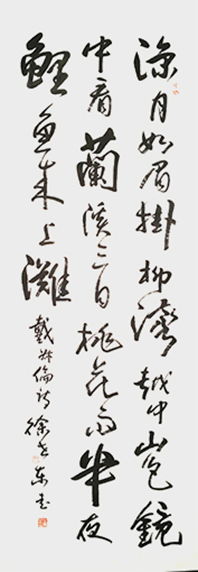 涼月如眉掛柳灣越中山色鏡
中看蘭溪三日桃花雨半夜
鯉魚来上灘戴叔倫詩徐克東書